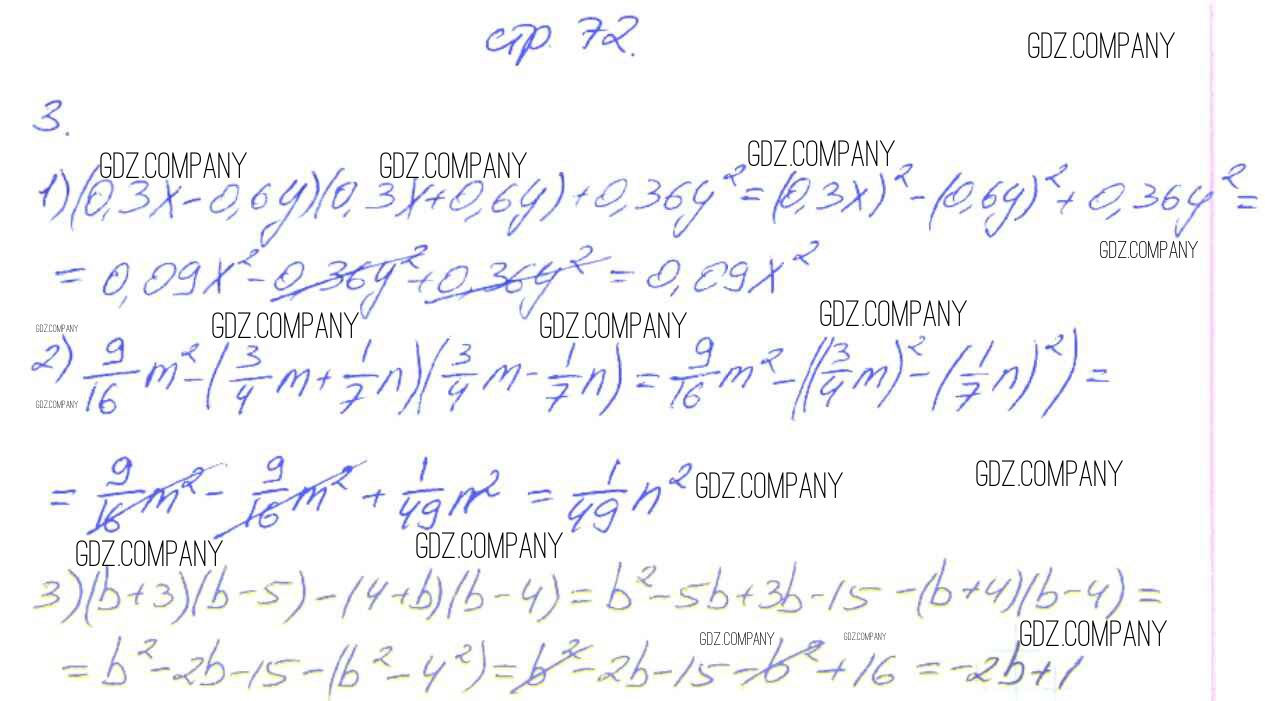 стр. 72.
GDZ.COMPANY
3.
GDZ.COMPANY GDZ.COMPANY GDZ.COMPANY
1) (0,3x-0,6y)(0,3x+0,6y)+0,36y² = (0,3x)² - (0,6y)² + 0,36y² =
GDZ.COMPANY
= 0,09x² - 0,36y² + 0,36y² = 0,09x²
GDZ.COMPANY GDZ.COMPANY GDZ.COMPANY GDZ.COMPANY
2) 9/16 m² - (3/4 m + 1/7 n)(3/4 m - 1/7 n) = 9/16 m² - ((3/4 m)² - (1/7 n)²) =
GDZ.COMPANY
= 9/16 m² - 9/16 m² + 1/49 n² = 1/49 n²
GDZ.COMPANY GDZ.COMPANY
GDZ.COMPANY GDZ.COMPANY
3) (b+3)(b-5) - (4+b)(b-4) = b² - 5b + 3b - 15 - (b+4)(b-4) =
GDZ.COMPANY GDZ.COMPANY GDZ.COMPANY
= b² - 2b - 15 - (b² - 4²) = b² - 2b - 15 - b² + 16 = -2b + 1